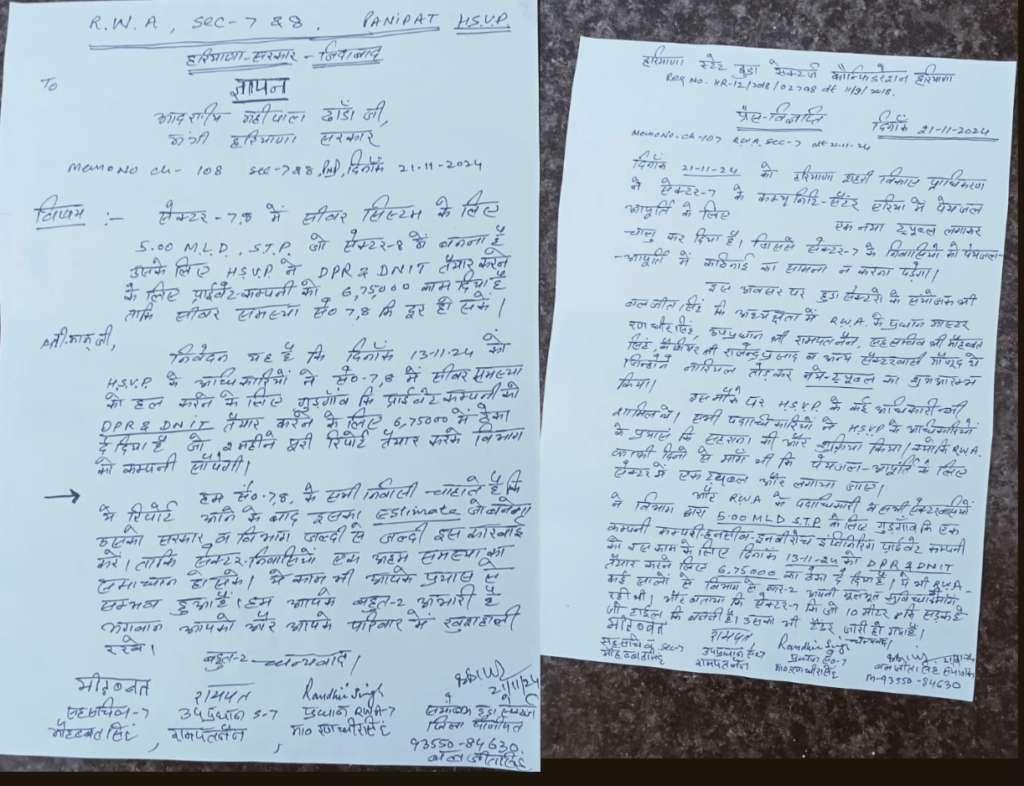 R.W.A, SEC-7 & 8, PANIPAT H.S.V.P.
हरियाणा-सरकार - जिन्दाबाद
To
ज्ञापन
आदरणीय महीपाल ढाँडा जी,
मंत्री हरियाणा सरकार
Memo NO ch- 108 sec-7&8, PNP, दिनाँक 21-11-2024
विषय :- सैक्टर-7,8 में सीवर सिस्टम के लिए
5.00 M.L.D. S.T.P. जो सैक्टर-8 में बनना है
उसके लिए H.S.V.P. ने DPR & DNIT तैयार करने
के लिए प्राईवेट-कम्पनी को 6,75,000 काम दिया है
ताकि सीवर समस्या सै० 7,8 कि दूर हो सकें।
श्री मान् जी,
निवेदन यह है कि दिनाँक 13-11-24 को
H.S.V.P. के अधिकारियों ने सै०-7,8 में सीवर समस्या
को हल करने के लिए गुड़गाँव कि प्राईवेट-कम्पनी को
DPR & DNIT तैयार करने के लिए 6,75000 में ठेका
दे दिया है जो 2 महीने पूरी रिपोर्ट तैयार करके विभाग
को कम्पनी सौंपेगी।
→ हम सै०-7,8, के सभी निवासी चाहते है कि
ये रिपोर्ट आने के बाद इसका Estimate जो बनेगा
उसको सरकार व विभाग जल्दी से जल्दी इस कारवाई
करें। ताकि सैक्टर-निवासियों एक अहम समस्या का
समाधान हो सके। ये काम भी आपके प्रयास से
सम्भव हुआ है। हम आपके बहुत-2 आभारी है
भगवान आपको और आपके परिवार में खुशहाली
रखे।
बहुत-2 धन्यवाद।
मोहब्बत
सहसचिव-7
मोहब्बत सिंह,
रामपत
उपप्रधान S-7
रामपत नैन,
Randhir Singh
प्रधान RWA-7
मा० रणधीर सिंह
21/11/24
संयोजक हुडा सैक्टर्स
जिला पानीपत
93550-84630.
बलजीत सिंह
हरियाणा स्टेट हुडा सैक्टर्ज कॉन्फिडरेशन हरियाणा
REG NO. HR-12/2018/02798 dt 11/9/2018.
प्रैस-विज्ञप्ति दिनाँक 21-11-2024
Memo No. ch-107 R.W.A. sec-7 dt 21-11-24
दिनाँक 21-11-24 को हरियाणा शहरी विकास प्राधिकरण
ने सैक्टर-7 के कम्युनिटि-सैंटर एरिया में पेयजल
आपूर्ति के लिए एक नया ट्यूबल लगाकर
चालू कर दिया है। जिससे सैक्टर-7 के निवासियों को पेयजल-
आपूर्ति में कठिनाई का सामना न करना पड़ेगा।
इस अवसर पर हुडा सैक्टरो के संयोजक श्री
बलजीत सिंह कि अध्यक्षता में R.W.A. के प्रधान मास्टर
रणधीर सिंह, उपप्रधान श्री रामपत नैन, सहसचिव श्री मोहब्बत
सिंह, श्री राजेन्द्र प्रसाद व अन्य सैक्टरवासी मौजूद थे
जिन्होने नारियल तोड़कर नये-ट्यूबल का शुभआरम्भ
किया।
इस मौके पर H.S.V.P. के कई अधिकारी भी
शामिल थे। सभी पदाधिकारियों ने H.S.V.P के अधिकारियों
के प्रयास कि सहराना की और शुक्रिया किया। क्योंकि R.W.A.
काफी दिनो से माँग थी कि पेयजल-आपूर्ति के लिए
सैक्टर में एक ट्यूबल और लगाया जाए।
और RWA के पदाधिकारी व सभी सैक्टरवासियों
ने विभाग द्वारा 5.00 MLD S.T.P के लिए गुड़गाँव कि एक
कम्पनी इंजिनिरिंग प्राईवेट कम्पनी
को इस काम के लिए दिनाँक 13-11-24 को DPR & DNIT
तैयार करने लिए 6,75000 का ठेका दे दिया है। ये भी RWA-
कई सालों से विभाग से बार-2 अपनी मूलभूत सुविधा माँग
रही थी। और बताया कि सैक्टर-7 कि जो 10 मीटर कि सड़के है
जो टाईल कि बननी है। उसका भी टैंडर जारी हो गया है।
धन्यवाद
मोहब्बत
सहसचिव SEC-7
मोहब्बत सिंह
रामपत
उपप्रधान सै-7
रामपत नैन
Randhir Singh
प्रधान सै०-7
मा० रणधीर सिंह
21/11/24
बलजीत सिंह संयोजक
M-93550-84630